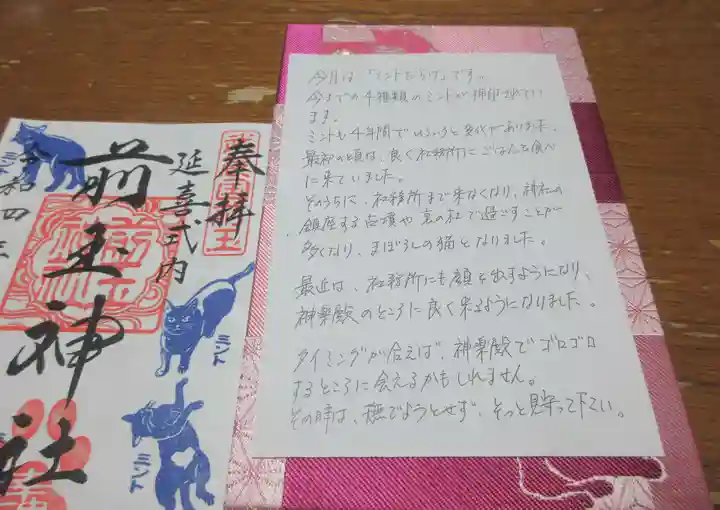 今月は「ミントだらけ」です。
今までの4種類のミントが押印されてい
ます。
ミントも4年間でいろいろと変化がありました。
最初の頃は、良く社務所にごはんを食べ
に来ていました。
そのうちに、社務所まで来なくなり、神社の
鎮座する古墳や裏の社で過ごすことが
多くなり、まぼろしの猫となりました。
最近は、社務所にも顔を出すようになり、
神楽殿のところに良く来るようになりました。
タイミングが合えば、神楽殿でゴロゴロ
するところに会えるかもしれません。
その時は、撫でようとせず、そっと見守って下さい。
奉拝
延喜式内
前玉神社
令和四年
ミント
ミント
ミント